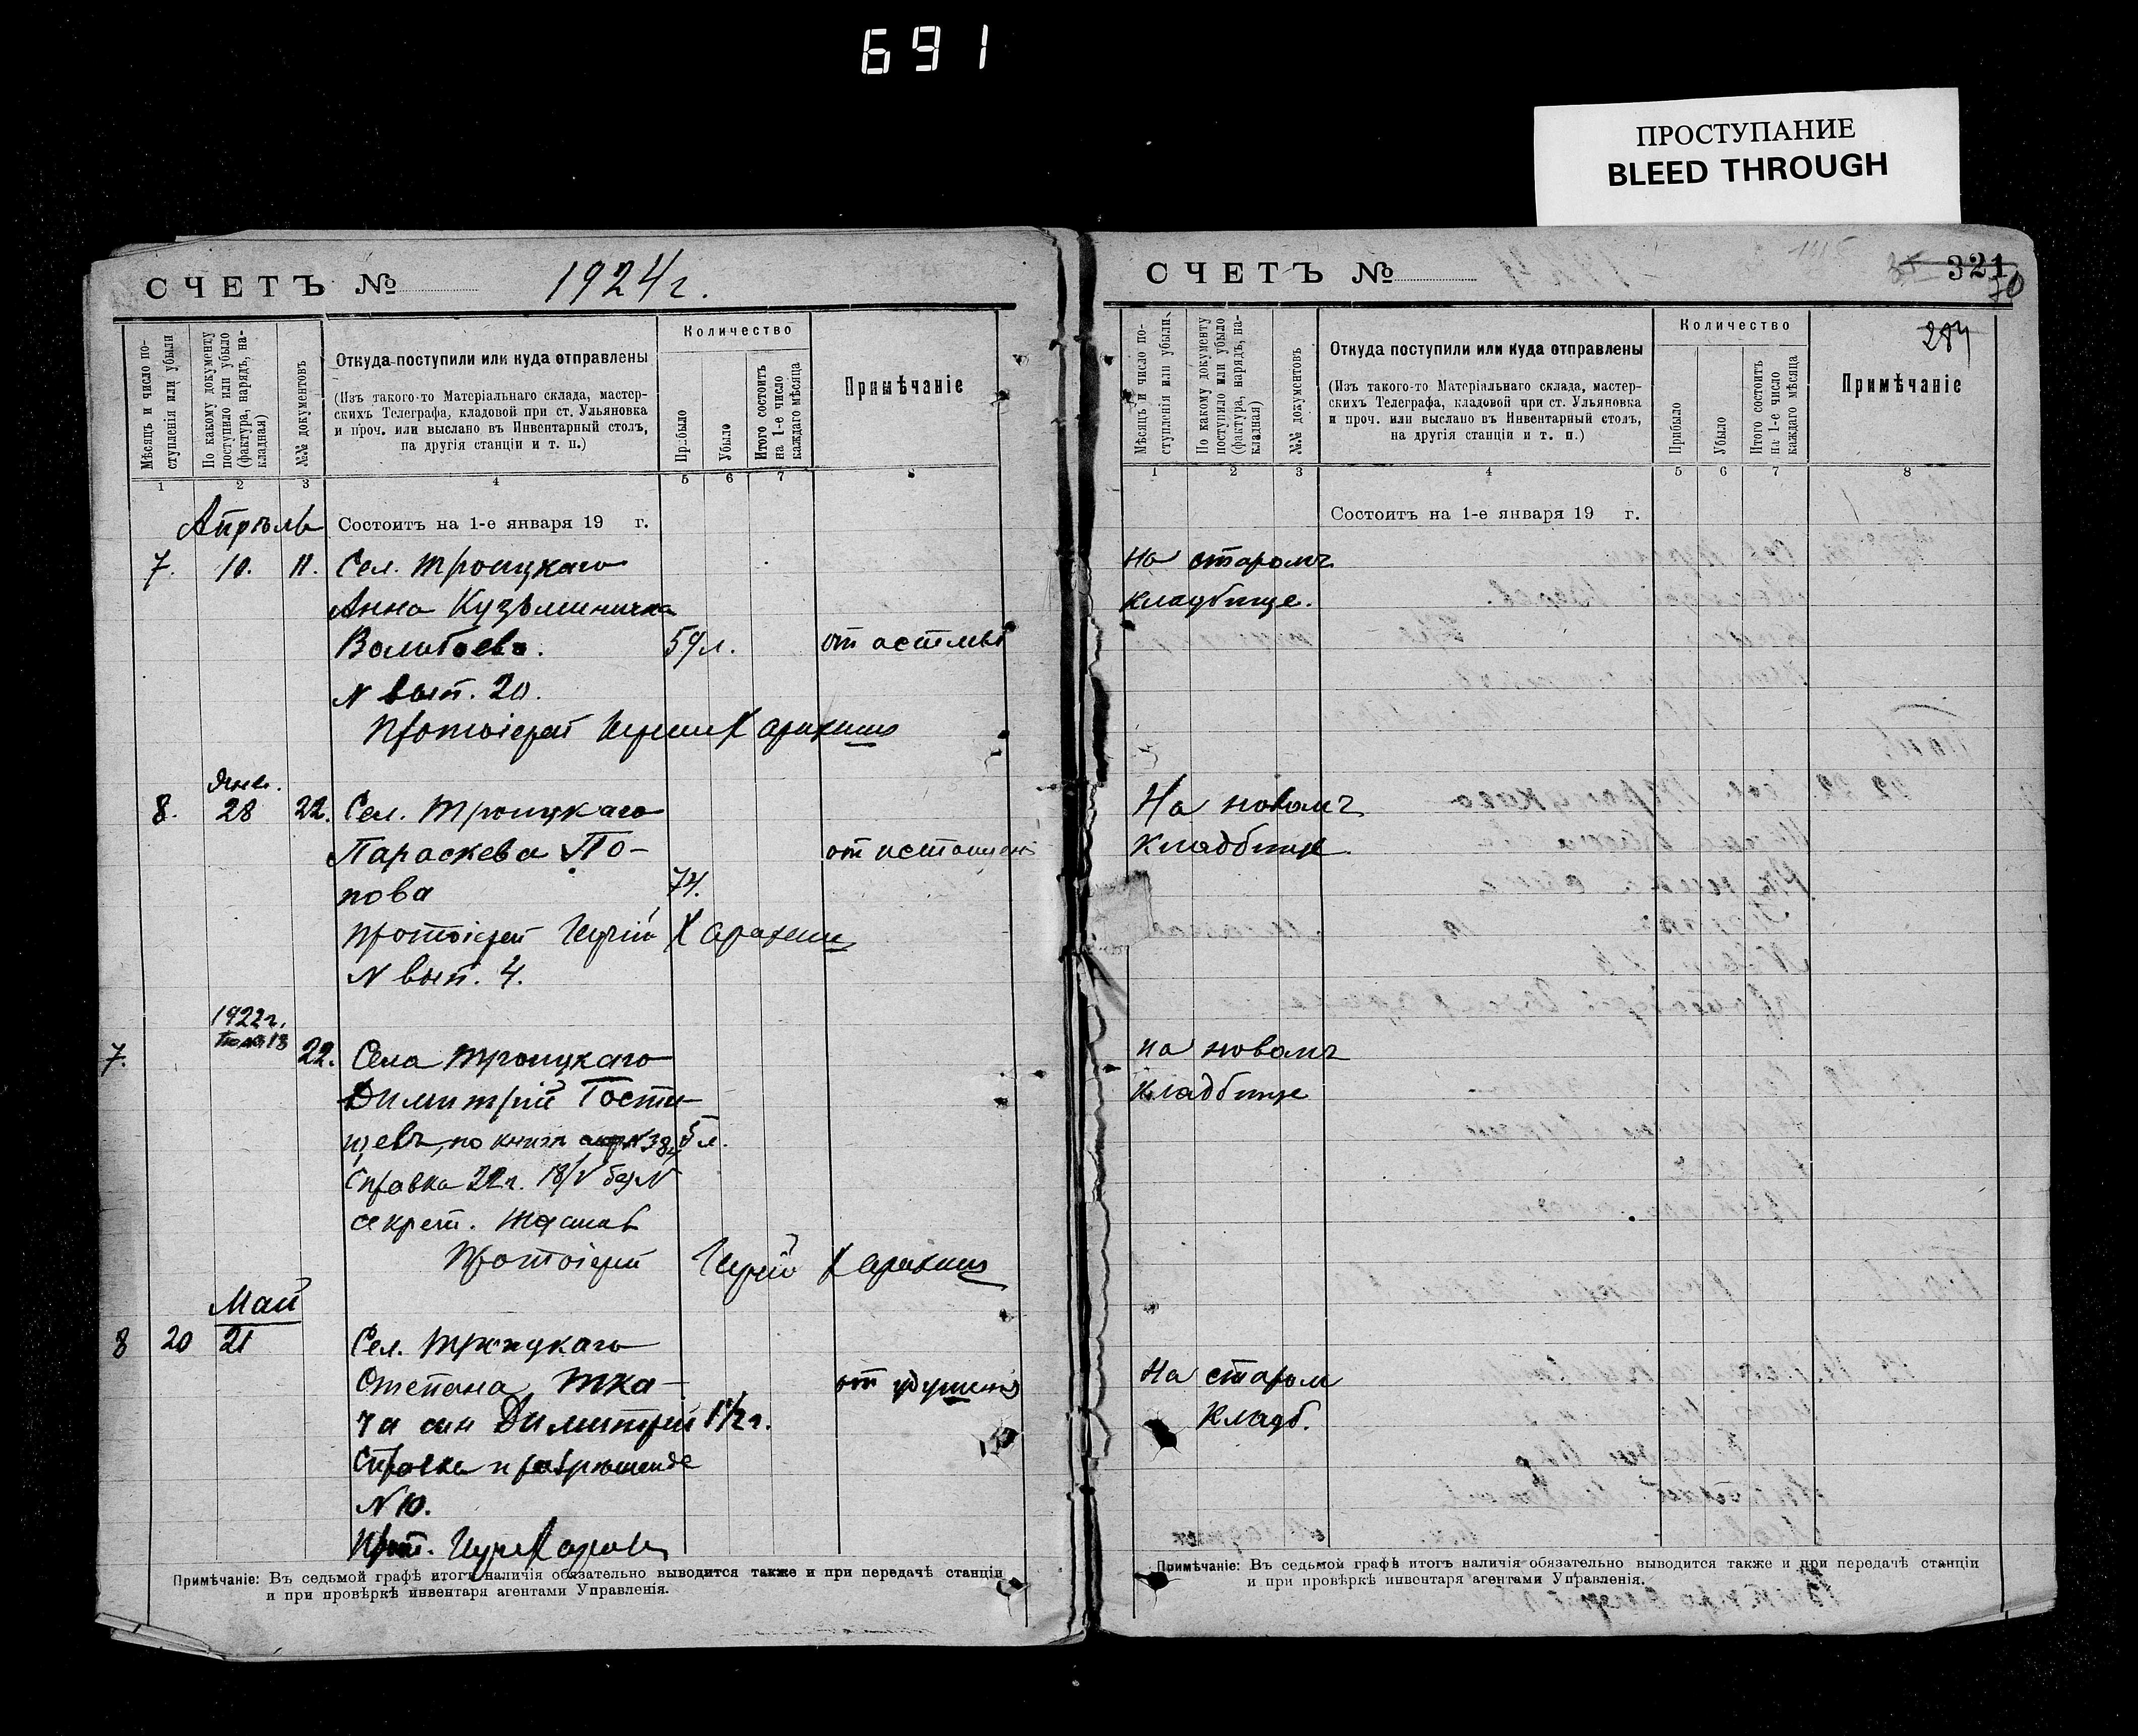 691
ПРОСТУПАНИЕ
BLEED THROUGH
СЧЕТЪ № 1924 г.
Мѣсяцъ и число поступленія или убыли
По какому документу поступило или убыло (фактура, нарядъ, накладная)
№№ документовъ
Откуда поступили или куда отправлены
(Изъ такого-то Матеріальнаго склада, мастер-
скихъ Телеграфа, кладовой при ст. Ульяновка
и проч. или выслано въ Инвентарный столъ,
на другія станціи и т. п.)
Количество
Прибыло
Убыло
Итого состоитъ на 1-е число каждаго мѣсяца
Примѣчаніе
1 2 3 4 5 6 7 8
Апрѣль Состоитъ на 1-е января 19 г.
7. 10. 11. Сел. Троицкаго
Анна Кузьминична
59 л.
N вып. 20.
Протоіерей Гурій Харахаш
Янв.
8. 28 22. Сел. Троицкаго
Параскева По-
пова 74.
Протоіерей Гурій
N вып. 4.
1922 г.
7. 22. Села Троицкаго
Димитрій Гости-
щевъ, по книгѣ N 38 5 л.
Справка 22 г. 18/V без N
секрет.
Протоіерей Гурій
Май
8 20 21 Сел. Троицкаго
Степана Тка-
ча сын Димитрій 1 1/2 г. от удушенія
Справка
N 10.
Прот. Гурій
Примѣчаніе: Въ седьмой графѣ итогъ наличія обязательно выводится также и при передачѣ станціи
и при провѣркѣ инвентаря агентами Управленія.
СЧЕТЪ № 321
70
Мѣсяцъ и число поступленія или убыли
По какому документу поступило или убыло (фактура, нарядъ, накладная)
№№ документовъ
Откуда поступили или куда отправлены
(Изъ такого-то Матеріальнаго склада, мастер-
скихъ Телеграфа, кладовой при ст. Ульяновка
и проч. или выслано въ Инвентарный столъ,
на другія станціи и т. п.)
Количество
Прибыло
Убыло
Итого состоитъ на 1-е число каждаго мѣсяца
Примѣчаніе
1 2 3 4 5 6 7 8
Состоитъ на 1-е января 19 г.
на старомъ
кладбище.
На новомъ
кладбище
на новомъ
кладбище
На старом
кладб.
Примѣчаніе: Въ седьмой графѣ итогъ наличія обязательно выводится также и при передачѣ станціи
и при провѣркѣ инвентаря агентами Управленія.